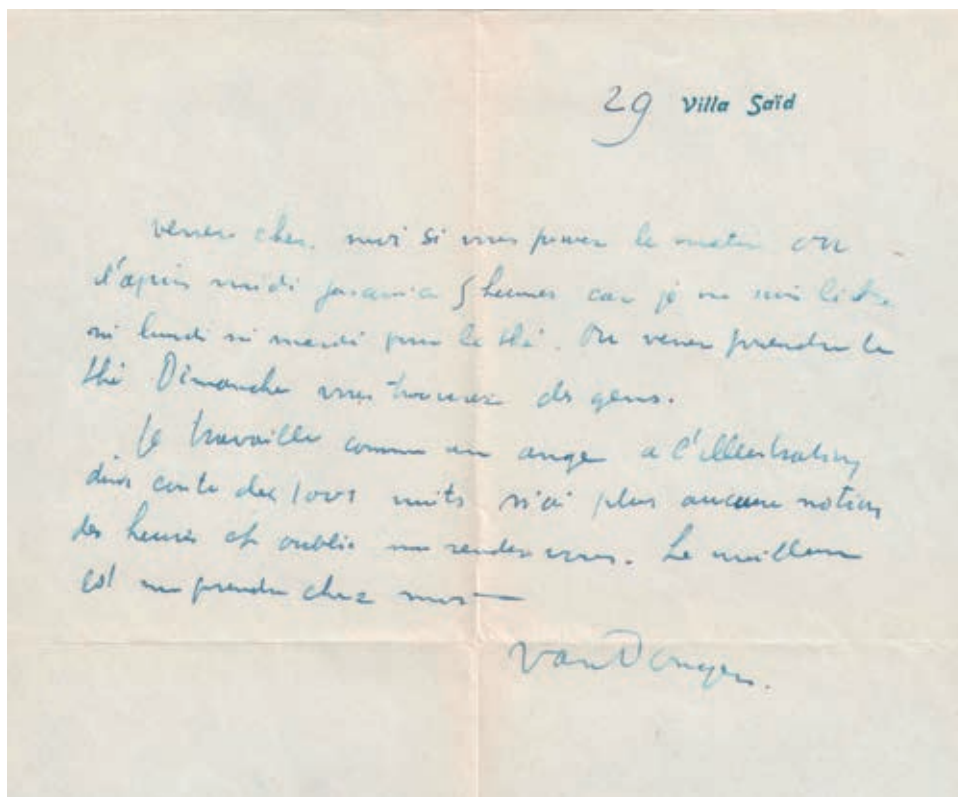 29 Villa Saïd
venez chez moi si vous pouvez le matin ou
l'après midi jusqu'à 5 heures car je ne suis libre
ni lundi ni mardi pour le thé. Ou venez prendre le
thé Dimanche vous trouverez des gens.
Je travaille comme un ange a l'illustration
d'un conte des 1001 nuits n'ai plus aucune notion
des heures et oublie mes rendez vous. Le meilleur
est me prendre chez moi —
van Dongen.